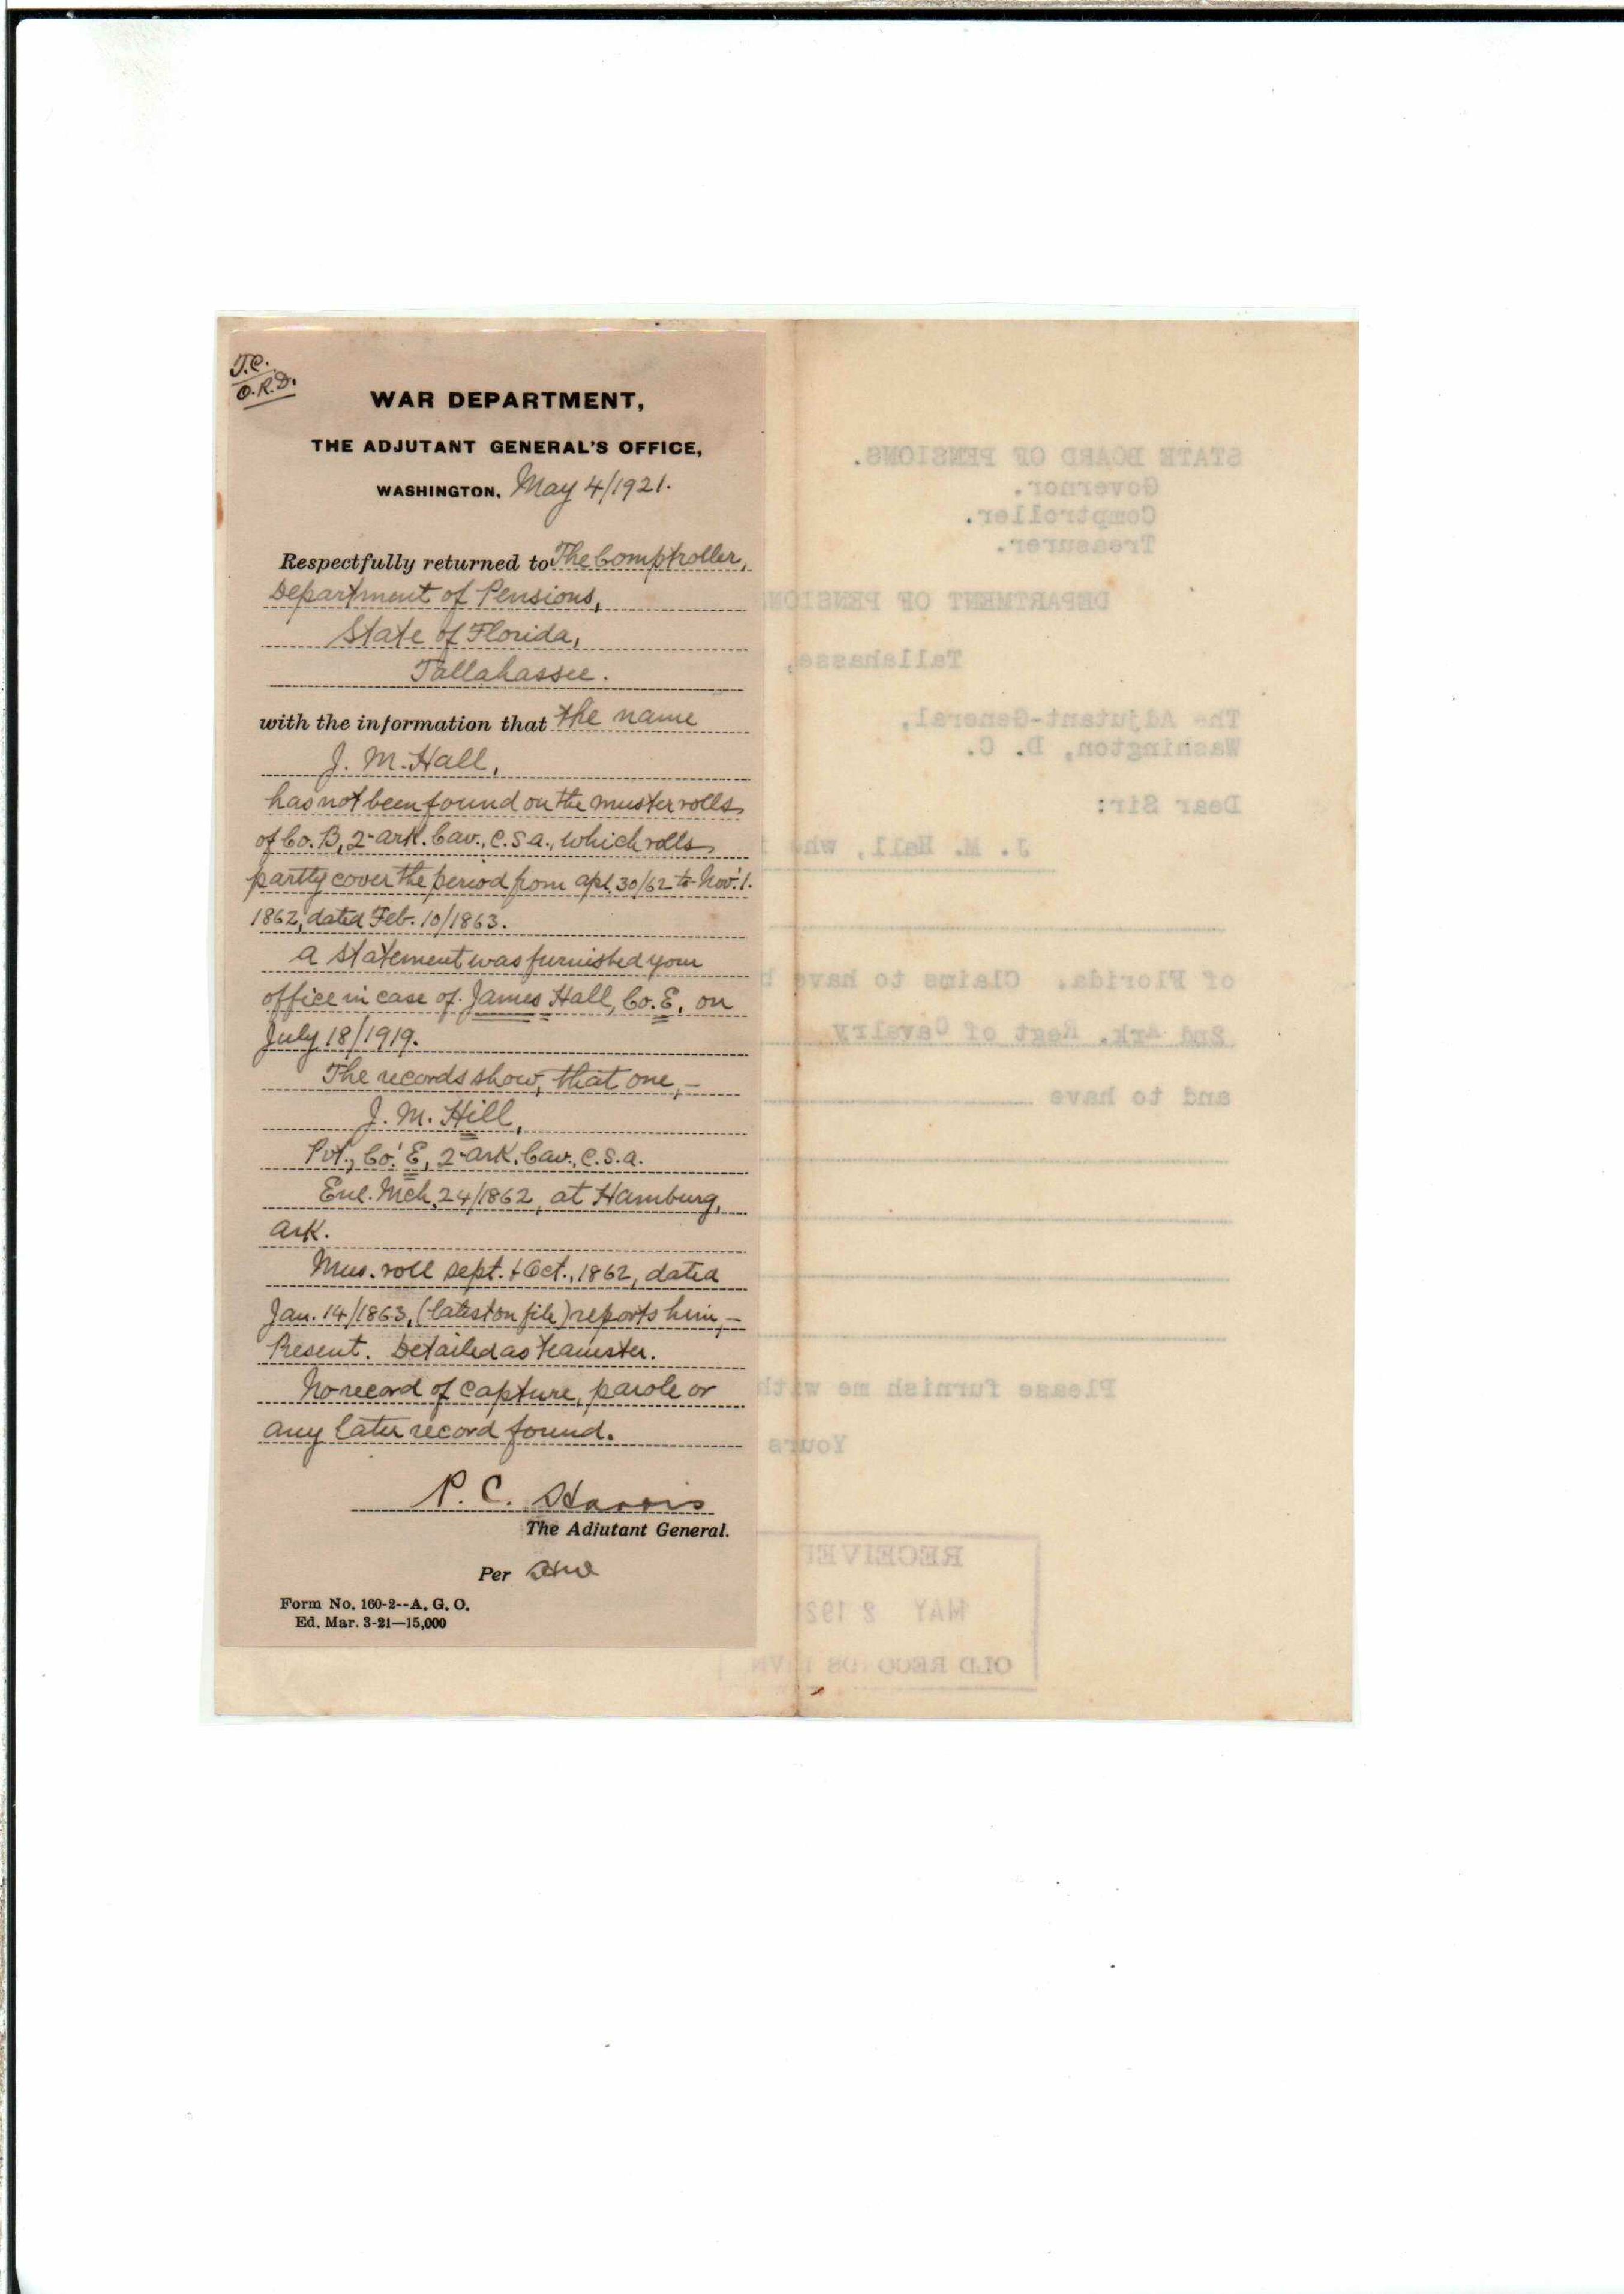 J.C.
O.R.D.
WAR DEPARTMENT,
THE ADJUTANT GENERAL'S OFFICE,
WASHINGTON, May 4/1921.
Respectfully returned to The Comptroller,
Department of Pensions,
State of Florida,
Tallahassee.
with the information that the name
J. M. Hall,
has not been found on the muster rolls
of Co. B, 2" Ark. Cav., C.S.A., which rolls
partly cover the period from Apl. 30/62 to Nov. 1.
1862, dated Feb. 10/1863.
A statement was furnished your
office in case of James Hall, Co. E, on
July 18/1919.
The records show, that one, —
J. M. Hill,
Pvt., Co. E, 2" Ark. Cav., C.S.A.
Enl. Mch. 24/1862, at Hamburg,
Ark.
Mus. roll Sept. & Oct., 1862, dated
Jan. 14/1863, (latest on file) reports him, —
Present. Detailed as teamster.
No record of capture, parole or
any later record found.
P. C. Harris
The Adjutant General.
Per
Form No. 160-2--A. G. O.
Ed. Mar. 3-21—15,000
STATE BOARD OF PENSIONS.
Governor.
Comptroller.
Treasurer.
DEPARTMENT OF PENSION
Tallahassee,
The Adjutant-General,
Washington, D. C.
Dear Sir:
J. M. Hall, who
of Florida. Claims to have
2nd Ark. Regt of Cavalry
and to have
Please furnish me with
Yours
RECEIVED
MAY 2 1921
OLD RECORDS